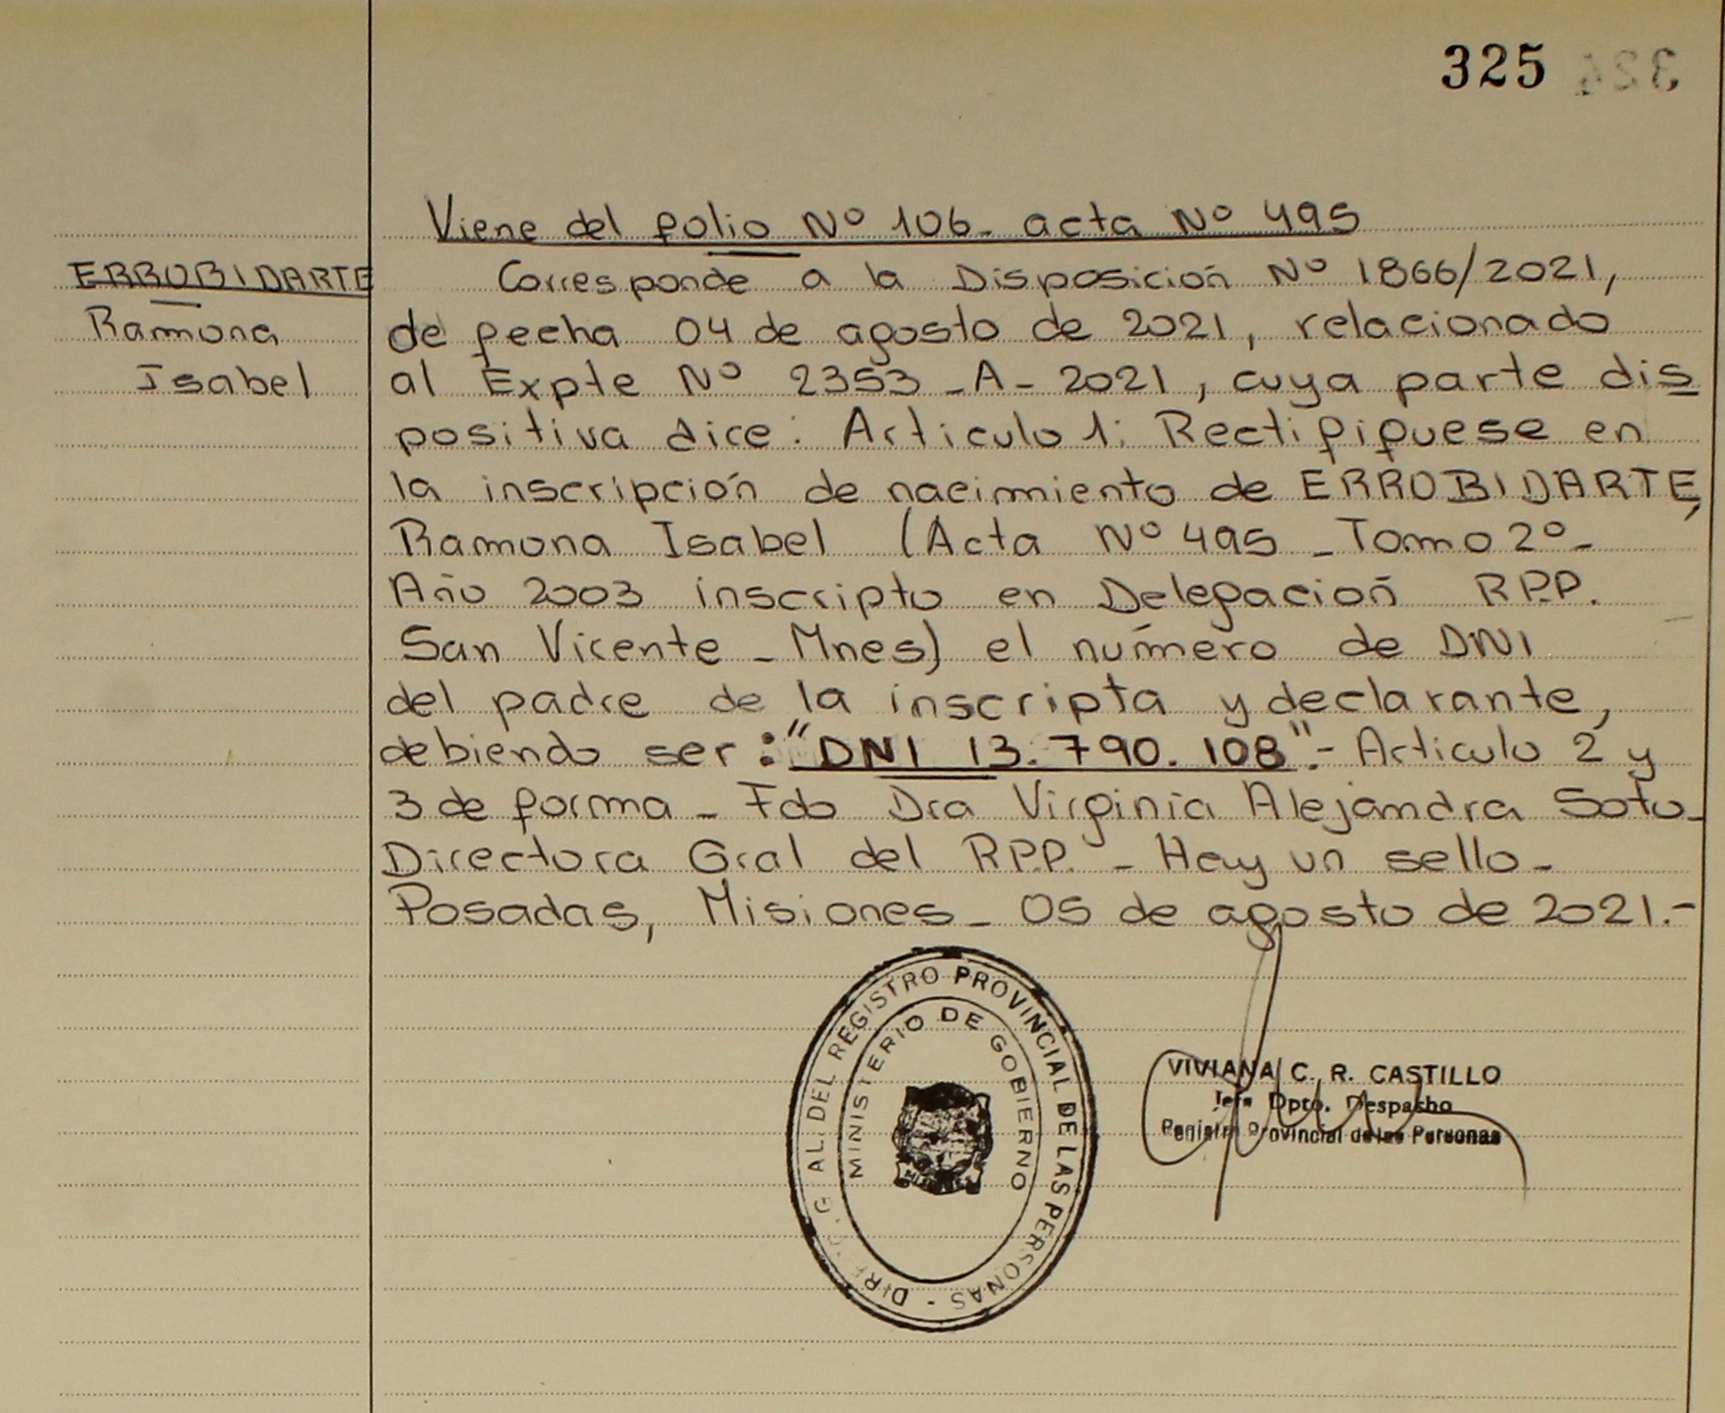 325
Viene del folio Nº 106- acta Nº 495
ERROBIDARTE
Ramona
Isabel
Corresponde a la Disposición Nº 1866/2021,
de fecha 04 de agosto de 2021, relacionado
al Expte Nº 2353-A-2021, cuya parte dis
positiva dice: Articulo 1: Rectififuese en
la inscripción de nacimiento de ERROBIDARTE,
Ramona Isabel (Acta Nº 495 - Tomo 2º-
Año 2003 inscripto en Delegación R.P.P.
San Vicente - Mnes) el número de DNI
del padre de la inscripta y declarante,
debiendo ser: "DNI 13.790.108".- Articulo 2 y
3 de forma - Fdo Dra Virginia Alejandra Soto-
Directora Gral del R.P.P. - Hay un sello-
Posadas, Misiones- 05 de agosto de 2021.-
AL. DEL REGISTRO PROVINCIAL DE LAS PERSONAS -
MINISTERIO DE GOBIERNO
VIVIANA C. R. CASTILLO
Jefa Dpto. Despacho
Registro Provincial de las Personas